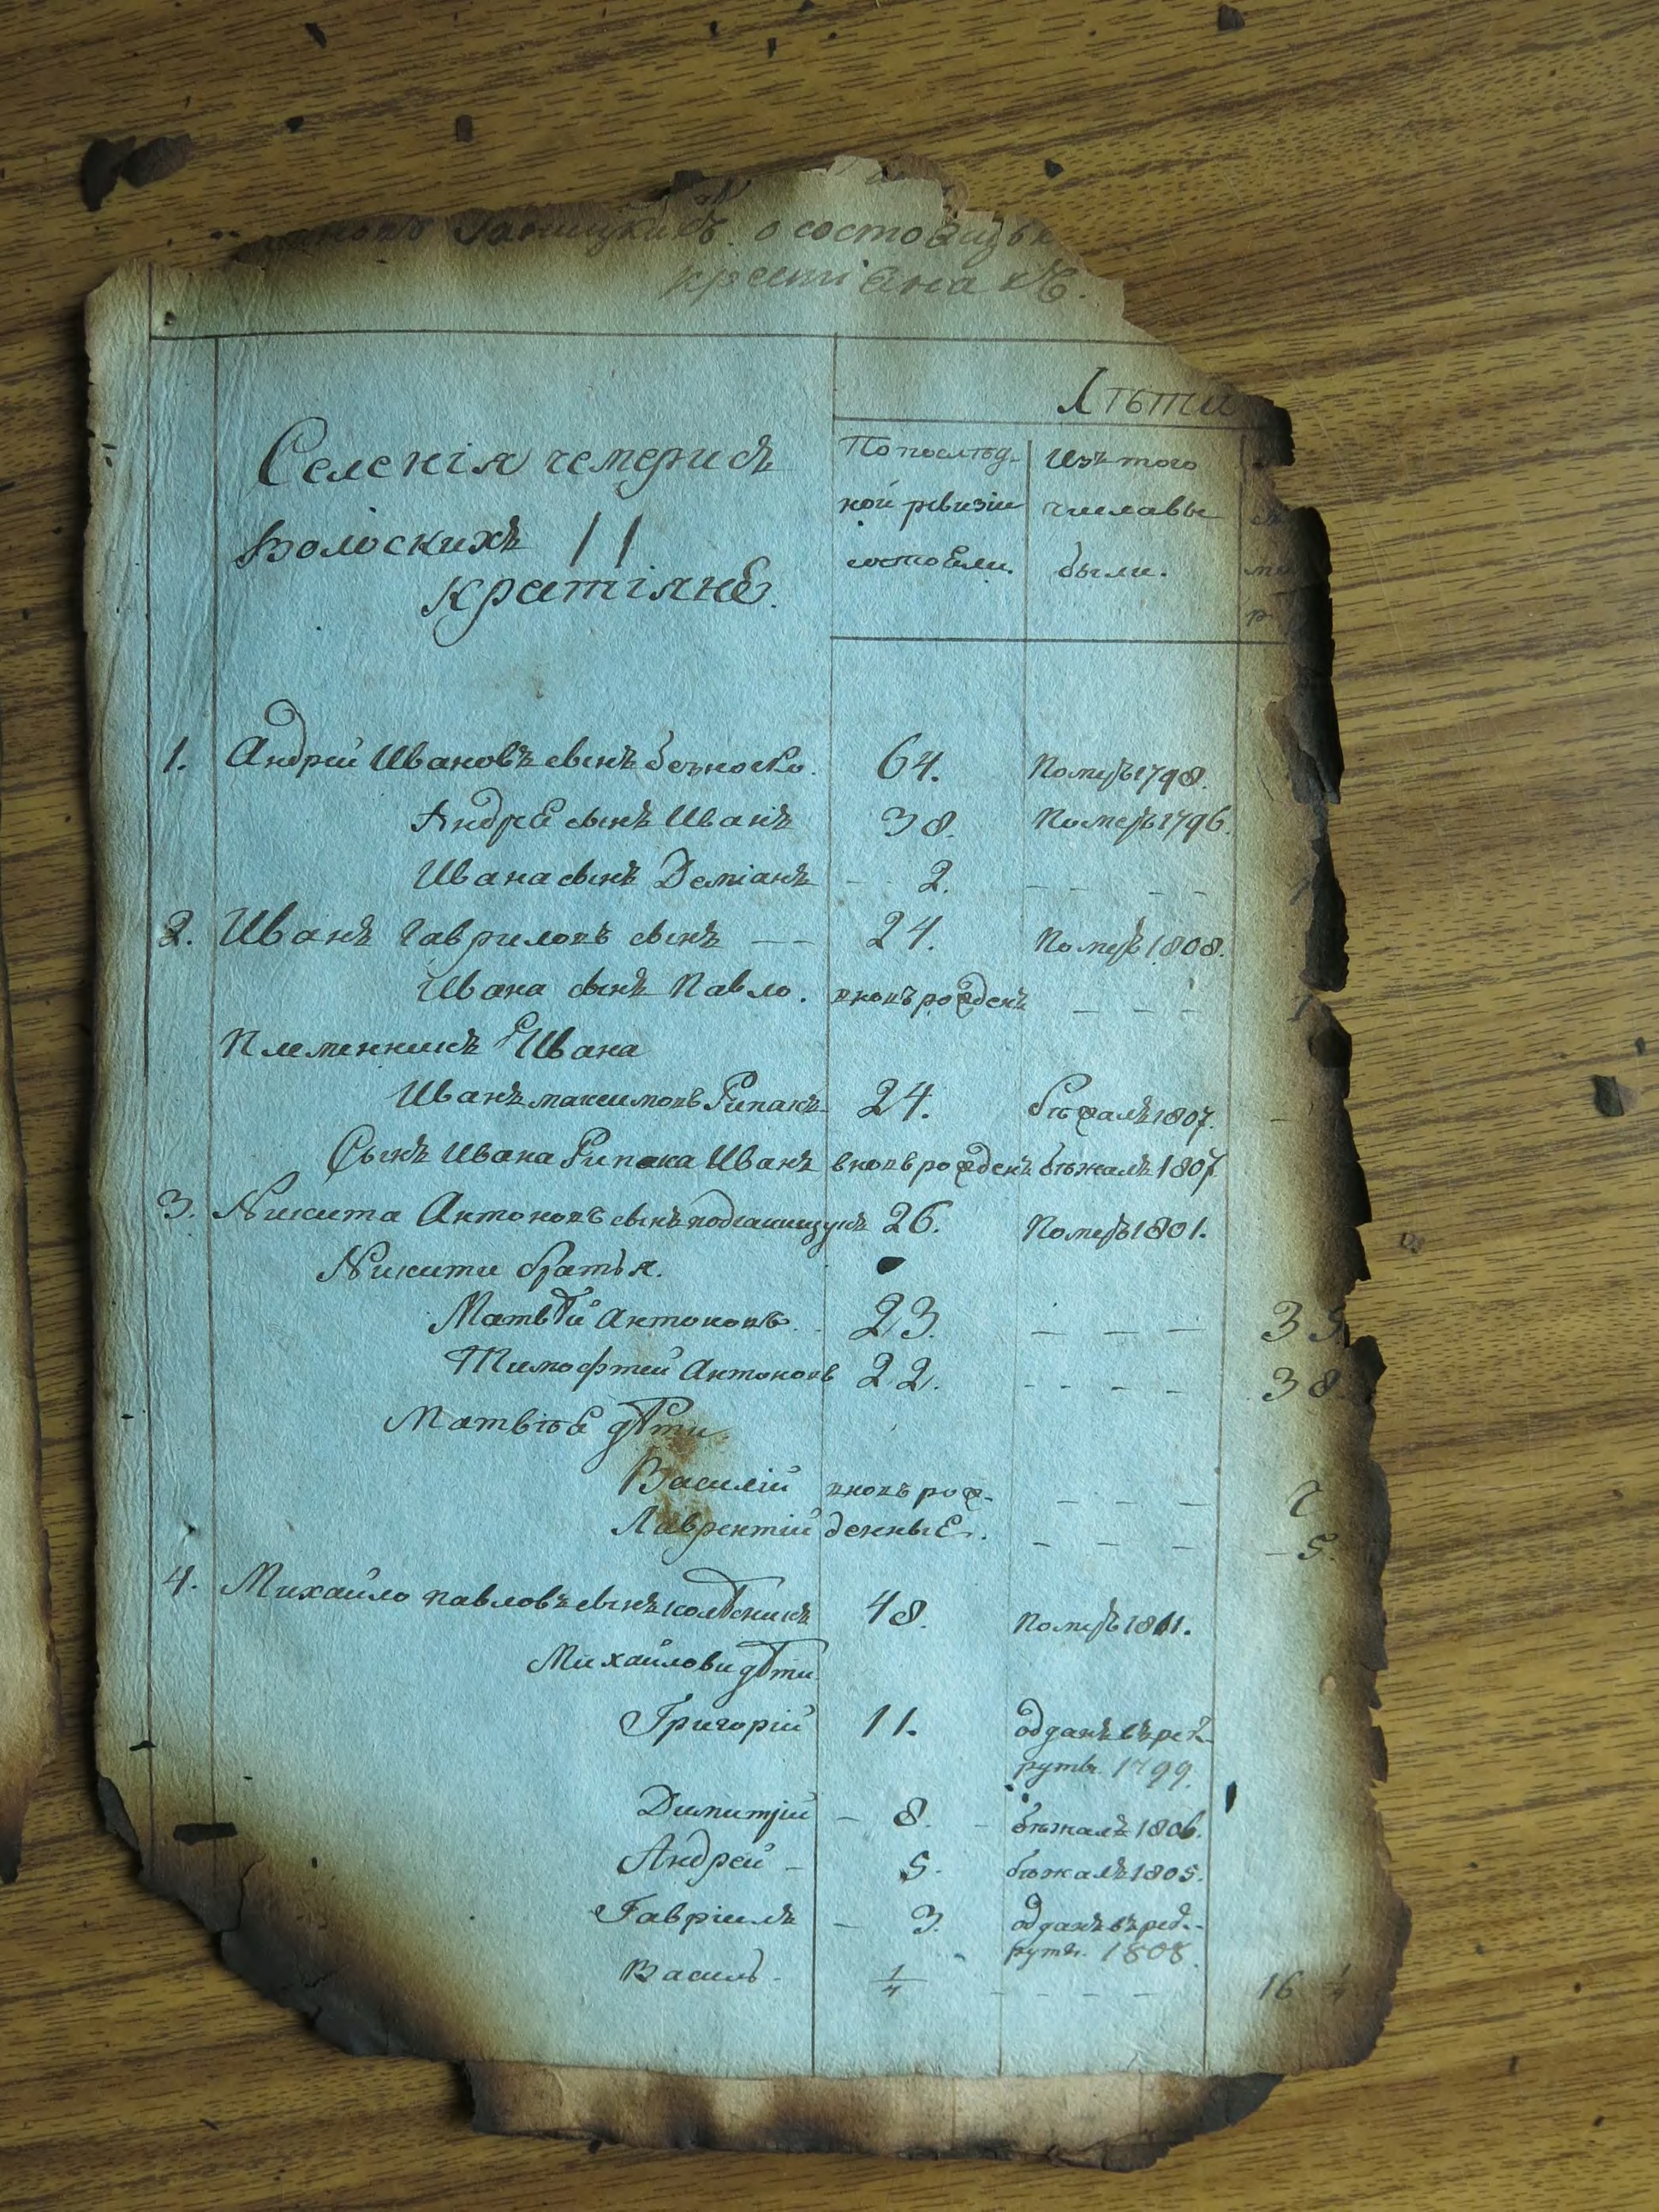 о состоящъ
крестіянахъ.
Лѣти
Селенія чемерисъ
Волоскихъ
крестіяне.
По послѣд-
ной ревизіи
состояли.
Изъ того
числа вы
были.
1. Андрей Ивановъ сынъ безноско. 64. Померъ 1798.
Андрея сынъ Иванъ 38. Померъ 1796.
Ивана сынъ Деміанъ - 2. - - - -
2. Иванъ Гавриловъ сынъ -- 24. Померъ 1808.
Ивана сынъ Павло. вновъ рожденъ - - - -
Племенникъ Ивана
Иванъ максимовъ Рипакъ 24. бѣжалъ 1807.
Сынъ Ивана Рипака Иванъ вновъ рожденъ бѣжалъ 1807.
3. Никита Антоновъ сынъ 26. Померъ 1801.
Никити братья.
Матвѣй Антоновъ. 23. - - - 35
Тимофтей Антоновъ 22. - - - - 38
Матвіѣя дѣти.
Василій вновъ рож- - - -
Лаврентій денные. - - - - 5.
4. Михайло павловъ сынъ колѣсникъ 48. Померъ 1811.
Михайлови дѣти.
Григорій 11. одданъ въ рек-
рутъ. 1799.
Димитрій - 8. - бѣжалъ 1806.
Андрей - 5. бѣжалъ 1805.
Гавріилъ - 3. одданъ въ рек-
рутъ. 1808.
Василь. 1/4 - - - - 16 1/4